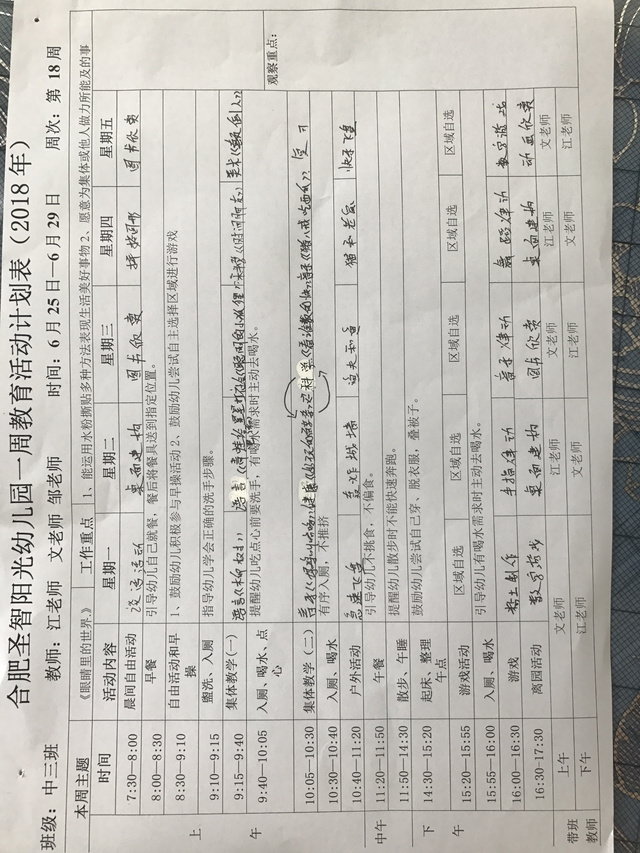 合肥圣智阳光幼儿园一周教育活动计划表(2018年)
班级:中三班 教师:江老师 文老师 邹老师 时间:6月25日—6月29日 周次:第18周
本周主题 《眼睛里的世界》 工作重点 1、能运用水粉撕贴多种方法表现生活美好事物2、愿意为集体或他人做力所能及的事
时间 活动内容 星期一 星期二 星期三 星期四 星期五 观察重点:
7:30—8:00 晨间自由活动 桌面建构 图书欣赏 图书欣赏
8:00—8:30 早餐 引导幼儿自己就餐,餐后将餐具送到指定位置。
上午
8:30—9:10 自由活动和早操 1、鼓励幼儿积极参与早操活动2、鼓励幼儿尝试自主选择区域进行游戏
9:10—9:15 盥洗、入厕 指导幼儿学会正确的洗手步骤。
9:15—9:40 集体教学(一)
9:40—10:05 入厕、喝水、点心 提醒幼儿吃点心前要洗手。有喝水需求时主动去喝水。
10:05—10:30 集体教学(二) 复习
10:30—10:40 入厕、喝水 有序入厕,不推挤
10:40—11:20 户外活动 轰炸城墙
中午
11:20—11:50 午餐 引导幼儿不挑食,不偏食。
11:50—14:30 散步、午睡 提醒幼儿散步时不能快速奔跑。
下午
14:30—15:20 起床、整理午点 鼓励幼儿尝试自己穿、脱衣服,叠被子。
15:20—15:55 游戏活动 区域自选 区域自选 区域自选 区域自选 区域自选
15:55—16:00 入厕、喝水 引导幼儿有喝水需求时主动去喝水。
16:00—16:30 游戏 黏土制作 手指律动 音乐律动 舞蹈律动 数字游戏
16:30-17:30 离园活动 数字游戏 桌面建构 图书欣赏 桌面建构 动画欣赏
带班教师 上午 文老师 江老师 文老师 江老师 文老师
下午 江老师 文老师 江老师 文老师 江老师